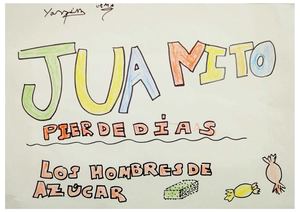 JUAMITO
PIERDE DÍAS
LOS HOMBRES DE
AZÚCAR